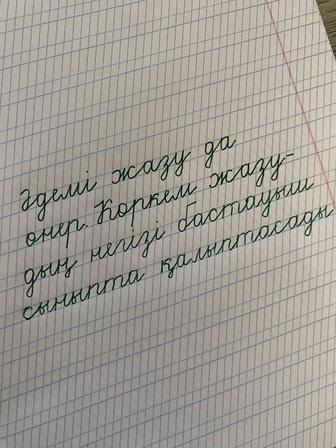 Әдемі жазу да
өнер. Көркем жазу-
дың негізі бастауыш
сыныпта қалыптасады